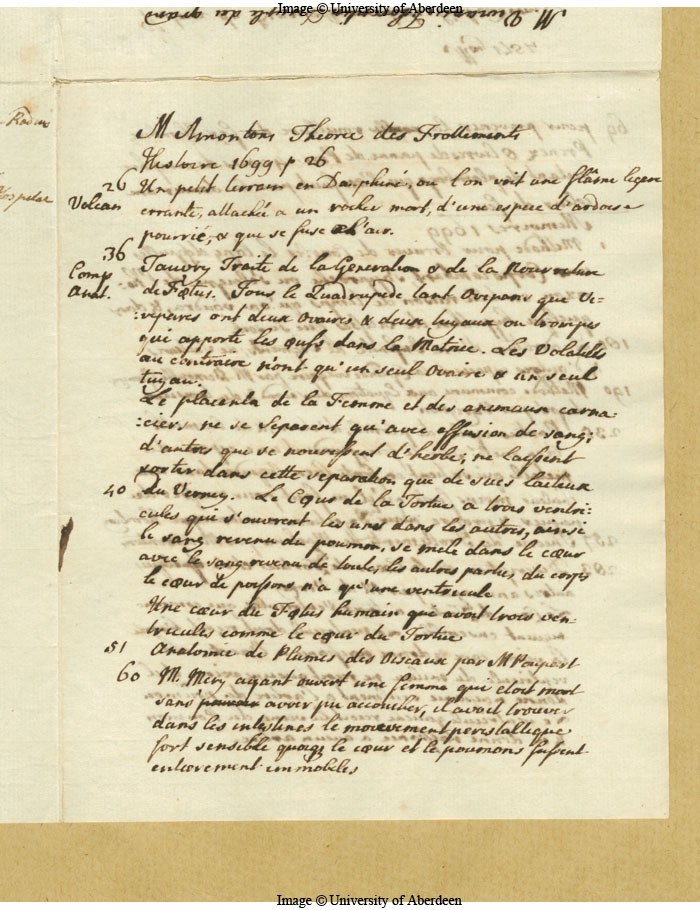 Image © University of Aberdeen
M Amontons Theorie des Frottements
Histoire 1699 p 26
26 Un petit terrain en Dauphiné, ou l'on voit une flâme legere
Volcan errante, attachée a un rocher mort, d'une espece d'ardoise
pourrié, & que se fuse a l'air.
36 Tauvry Traite de la Generation & de la Nourriture
Comp de Fœtus. Tous le Quadrupede tant Ovipans que Vi-
Anat. :vipares ont deux Ovaires & deux tuyaux ou trompes
qui apporte les œufs dans la Matrice. Les Volatills
au contraire n'ont qu'un seul Ovaire & un seul
tuyau.
Le placenta de la Femme et des animaux carna-
:ciers ne se Separent qu'avec effusion de sang;
d'autres que se nourissent d'herbe, ne laissent
sorter dans cette separation que de sucs laiteux
40 du Verney. Le Cœur de la Tortue a trois ventri-
cules qui s'ouvrent les unes dans les autres, ainsi
le sang revenu du poumon, se mele dans le cœur
avec le sang revenu de toute, les autres parties du corps
le cœur de poissons n'a qu'une ventricule
Une cœur du Fœtus humain que avoit trois ven-
tricules comme le cœur du Tortue
51 Anatomie de Plumes des Oiseaux par M Poupart
60 M. Mery ayant ouvert une femme qui etoit mort
sans avoir pu accoucher, il avoit trouver
dans les intestines le mouvement peristaltique
fort sensible quoiq; le cœur et le poumons fussent
entierement immobiles
Image © University of Aberdeen